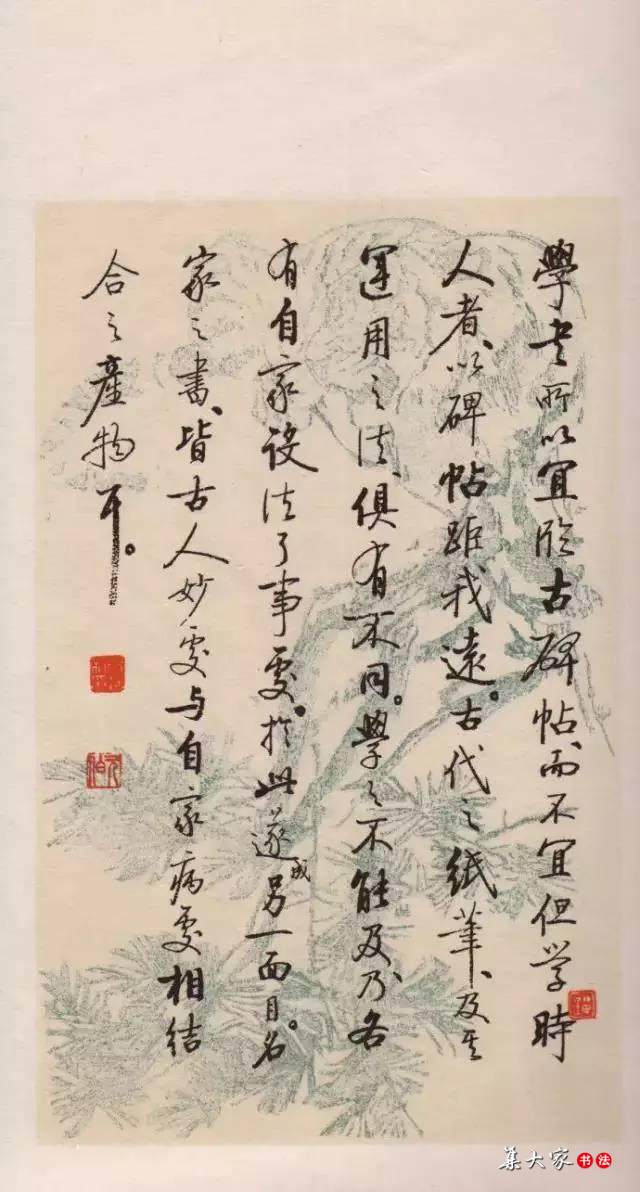 學书所以宜临古碑帖、而不宜但学時
人者、以碑帖距我遠。古代之紙筆、及其
運用之法、俱有不同。學之不能及、乃各
有自家设法了事處。於此遂成另一面目。名
家之書、皆古人妙處与自家病處相結
合之產物耳。
集大家书法